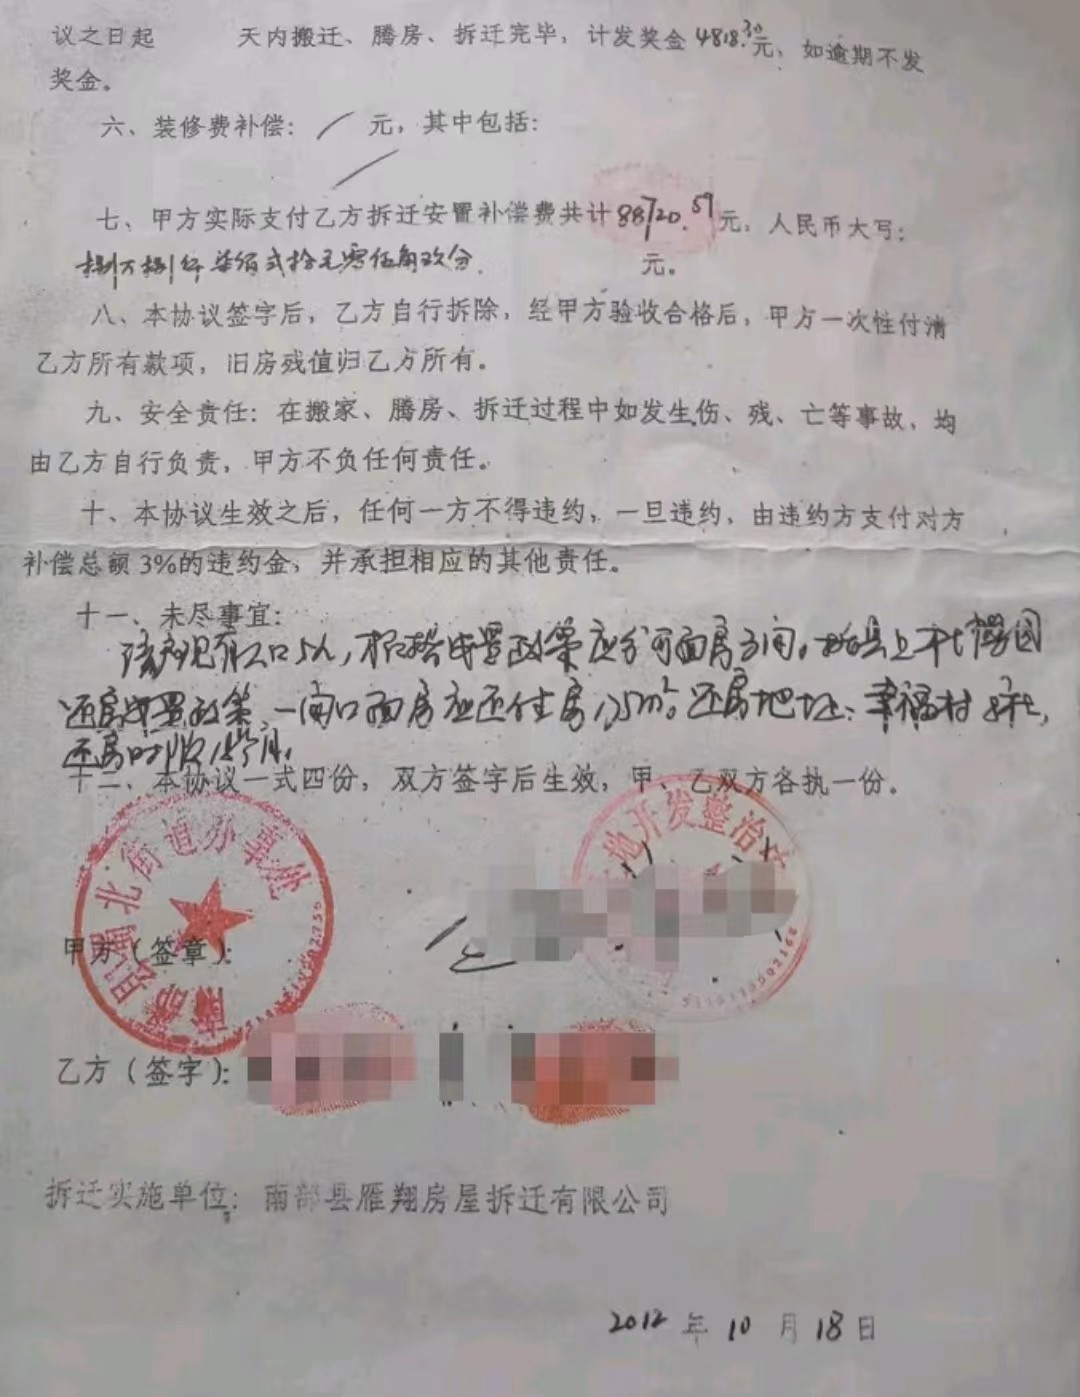 议之日起 天内搬迁、腾房、拆迁完毕，计发奖金 4818.30元，如逾期不发
奖金。
六、装修费补偿：／ 元，其中包括：
七、甲方实际支付乙方拆迁安置补偿费共计88720.59元，人民币大写：
捌万捌仟柒佰贰拾元零伍角玖分 元。
八、本协议签字后，乙方自行拆除，经甲方验收合格后，甲方一次性付清
乙方所有款项，旧房残值归乙方所有。
九、安全责任：在搬家、腾房、拆迁过程中如发生伤、残、亡等事故，均
由乙方自行负责，甲方不负任何责任。
十、本协议生效之后，任何一方不得违约，一旦违约，由违约方支付对方
补偿总额3%的违约金，并承担相应的其他责任。
十一、未尽事宜：
该户现有人口5人，根据安置政策应分门面房 间。
还房安置政策，一间门面房应还住房 m²。还房地址：幸福村
还房时限 个月。
十二、本协议一式四份，双方签字后生效，甲、乙双方各执一份。
南部县蜀北街道办事处
地开发整治
甲方（签章）：
乙方（签字）：
拆迁实施单位：南部县雁翔房屋拆迁有限公司
2012 年 10 月 18 日